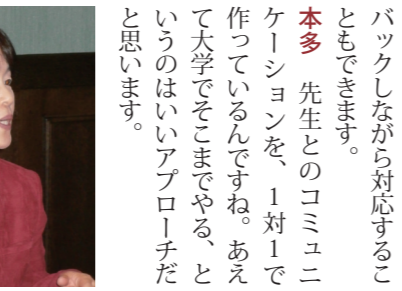 バックしながら対応するこ
ともできます。
本多　先生とのコミュニ
ケーションを、1対1で
作っているんですね。あえ
て大学でそこまでやる、と
いうのはいいアプローチだ
と思います。